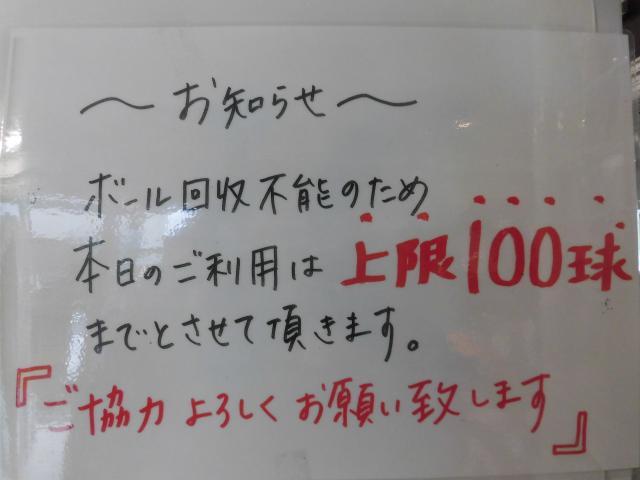 〜お知らせ〜
ボール回収不能のため
本日のご利用は上限100球
までとさせて頂きます。
『ご協力よろしくお願い致します』